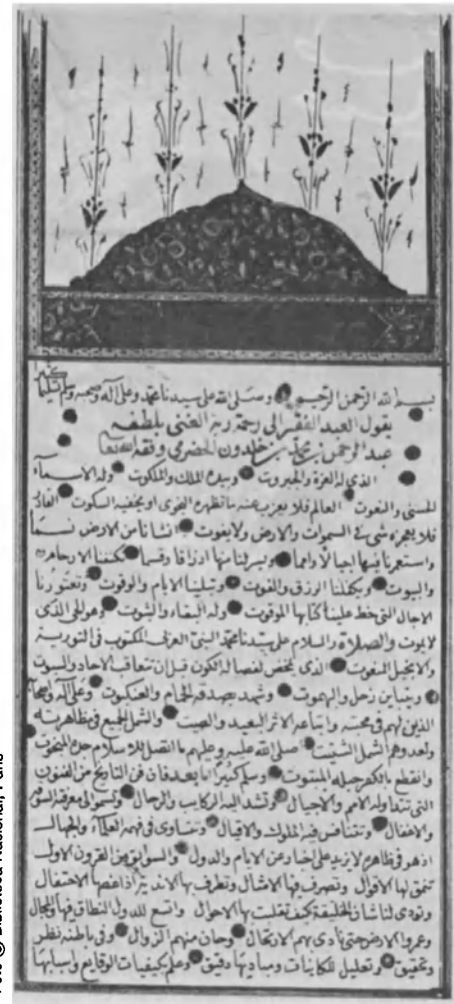 بسم الله الرحمن الرحيم وصلى الله على سيدنا محمد وعلى آله وصحبه وسلم تسليما كثيرا
يقول العبد الفقير الى رحمة ربه الغنى بلطفه
عبد الرحمن بن محمد بن خلدون الحضرمى وفقه الله تعالى
الذى له العزة والجبروت وبيده الملك والملكوت وله الاسماء
الحسنى والنعوت العالم فلا يعزب عنه ما تظهره النجوى او يخفيه السكوت القادر
فلا يعجزه شىء فى السموات والارض ولا يفوت انشانا من الارض نسما
واستعمرنا فيها اجيالا وامما ويسر لنا منها ارزاقا وقسما تكنفنا الارحام
والبيوت ويكفلنا الرزق والقوت وتبلينا الايام والوقوت وتعتورنا
الاجال التى خط علينا كتابها الموقوت وله البقاء والثبوت وهو الحى الذى
لا يموت والصلاة والسلام على سيدنا محمد النبى العربى المكتوب فى التورية
والانجيل المنعوت الذى تمخض لفصاله الكون قبل ان تتعاقب الاحاد والسبوت
ويتباين زحل والبهموت وشهد بصدقه الحمام والعنكبوت وعلى آله وصحابه
الذين لهم فى محبته واتباعه الاثر البعيد والصيت والشمل الجميع فى مظاهرته
ولعدوهم الشمل الشتيت صلى الله عليه وعليهم ما اتصل للاسلام جده المبخوت
وانقطع بالكفر حبله المبتوت وسلم كثيرا اما بعد فان فن التاريخ من الفنون
التى تتداوله الامم والاجيال وتشد اليه الركايب والرحال وتسمو الى معرفته السوقة
والاغفال وتتنافس فيه الملوك والاقيال وتتساوى فى فهمه العلماء والجهال
اذ هو فى ظاهره لا يزيد على اخبار عن الايام والدول والسوابق من القرون الاول
تنمق لها الاقوال وتصرف فيها الامثال وتطرف بها الاندية اذا غصها الاحتفال
وتؤدى لنا شان الخليقة كيف تقلبت بها الاحوال واتسع للدول النطاق فيها والمجال
وعمروا الارض حتى نادى بهم الارتحال وحان منهم الزوال وفى باطنه نظر
وتحقيق وتعليل للكاينات ومباديها دقيق وعلم بكيفيات الوقايع واسبابها
Foto © Biblioteca Nacional, París